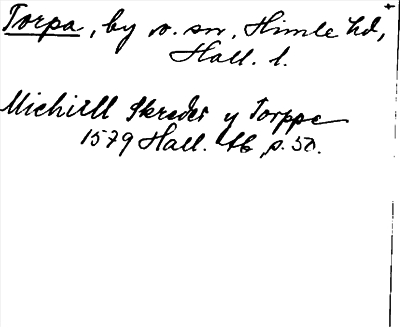 Torpa, by o. sn, Himle hd,
Hall. l.
Michill Skreder y Torppe
1579 Hall. tb p. 50.